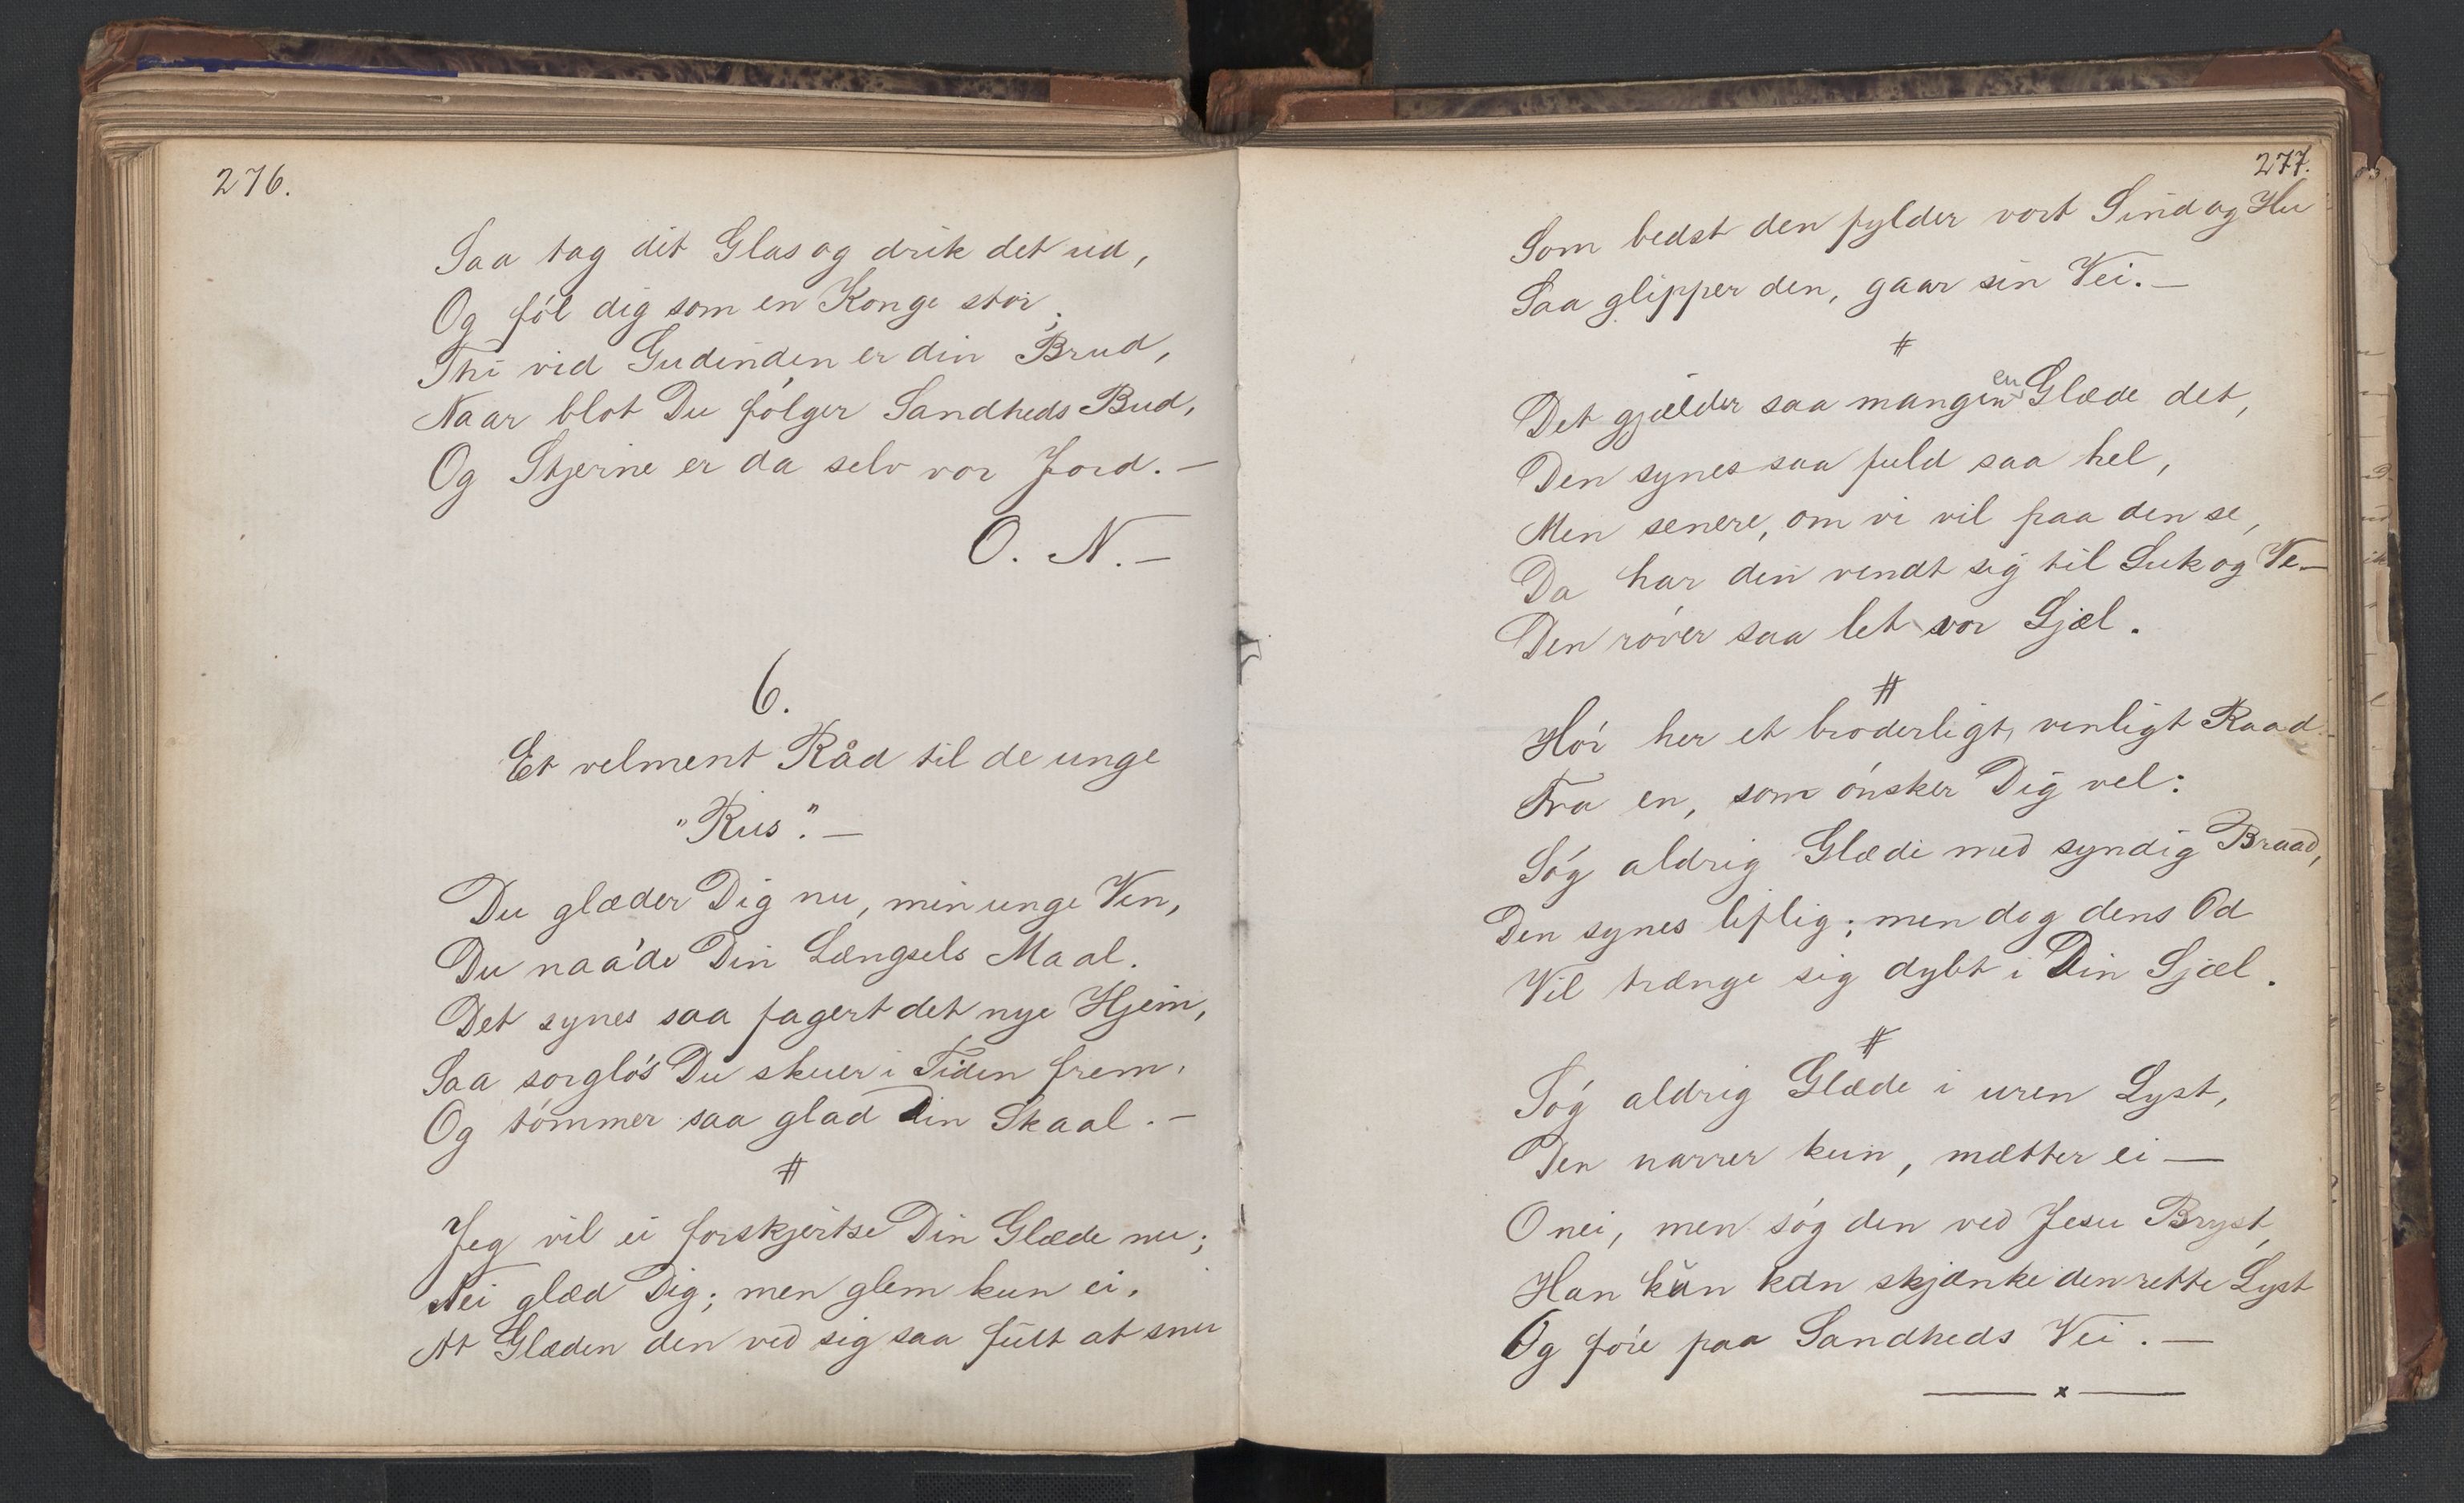 276.
Saa tag dit Glas og drik det ud,
Og føl dig som en Konge stor;
Thi vid Gudinden er din Brud,
Naar blot Du følger Sandheds Bud,
Og Stjerne er da selv vor Jord. —
O. N. —
6.
Et velment Råd til de unge
"Rus". —
Du glæder Dig nu, min unge Ven,
Du naa'de Din Længsels Maal.
Det synes saa fagert det nye Hjem,
Saa sorgløs Du skuer i Tiden frem,
Og tømmer saa glad Din Skaal. —
#
Jeg vil ei forskjertse Din Glæde nu;
Nei glæd Dig; men glem kun ei,
At Glæden den ved sig saa fult at snu
277.
Som bedst den fylder vort Sind og Hu
Saa glipper den, gaar sin Vei. —
#
Det gjælder saa mangen en Glæde det,
Den synes saa fuld saa hel,
Men senere, om vi vil paa den se,
Da har den vendt sig til Suk og Ve —
Den røver saa let vor Sjæl.
#
Hør her et broderligt, venligt Raad
Fra en, som ønsker Dig vel:
Søg aldrig Glæde med syndig Braad,
Den synes liflig; men dog dens Od
Vil trænge sig dybt i Din Sjæl.
#
Søg aldrig Glæde i uren Lyst,
Den narrer kun, mætter ei —
O nei, men søg den ved Jesu Bryst,
Han kun kan skjænke den rette Lyst
Og føre paa Sandheds Vei. —
— x —